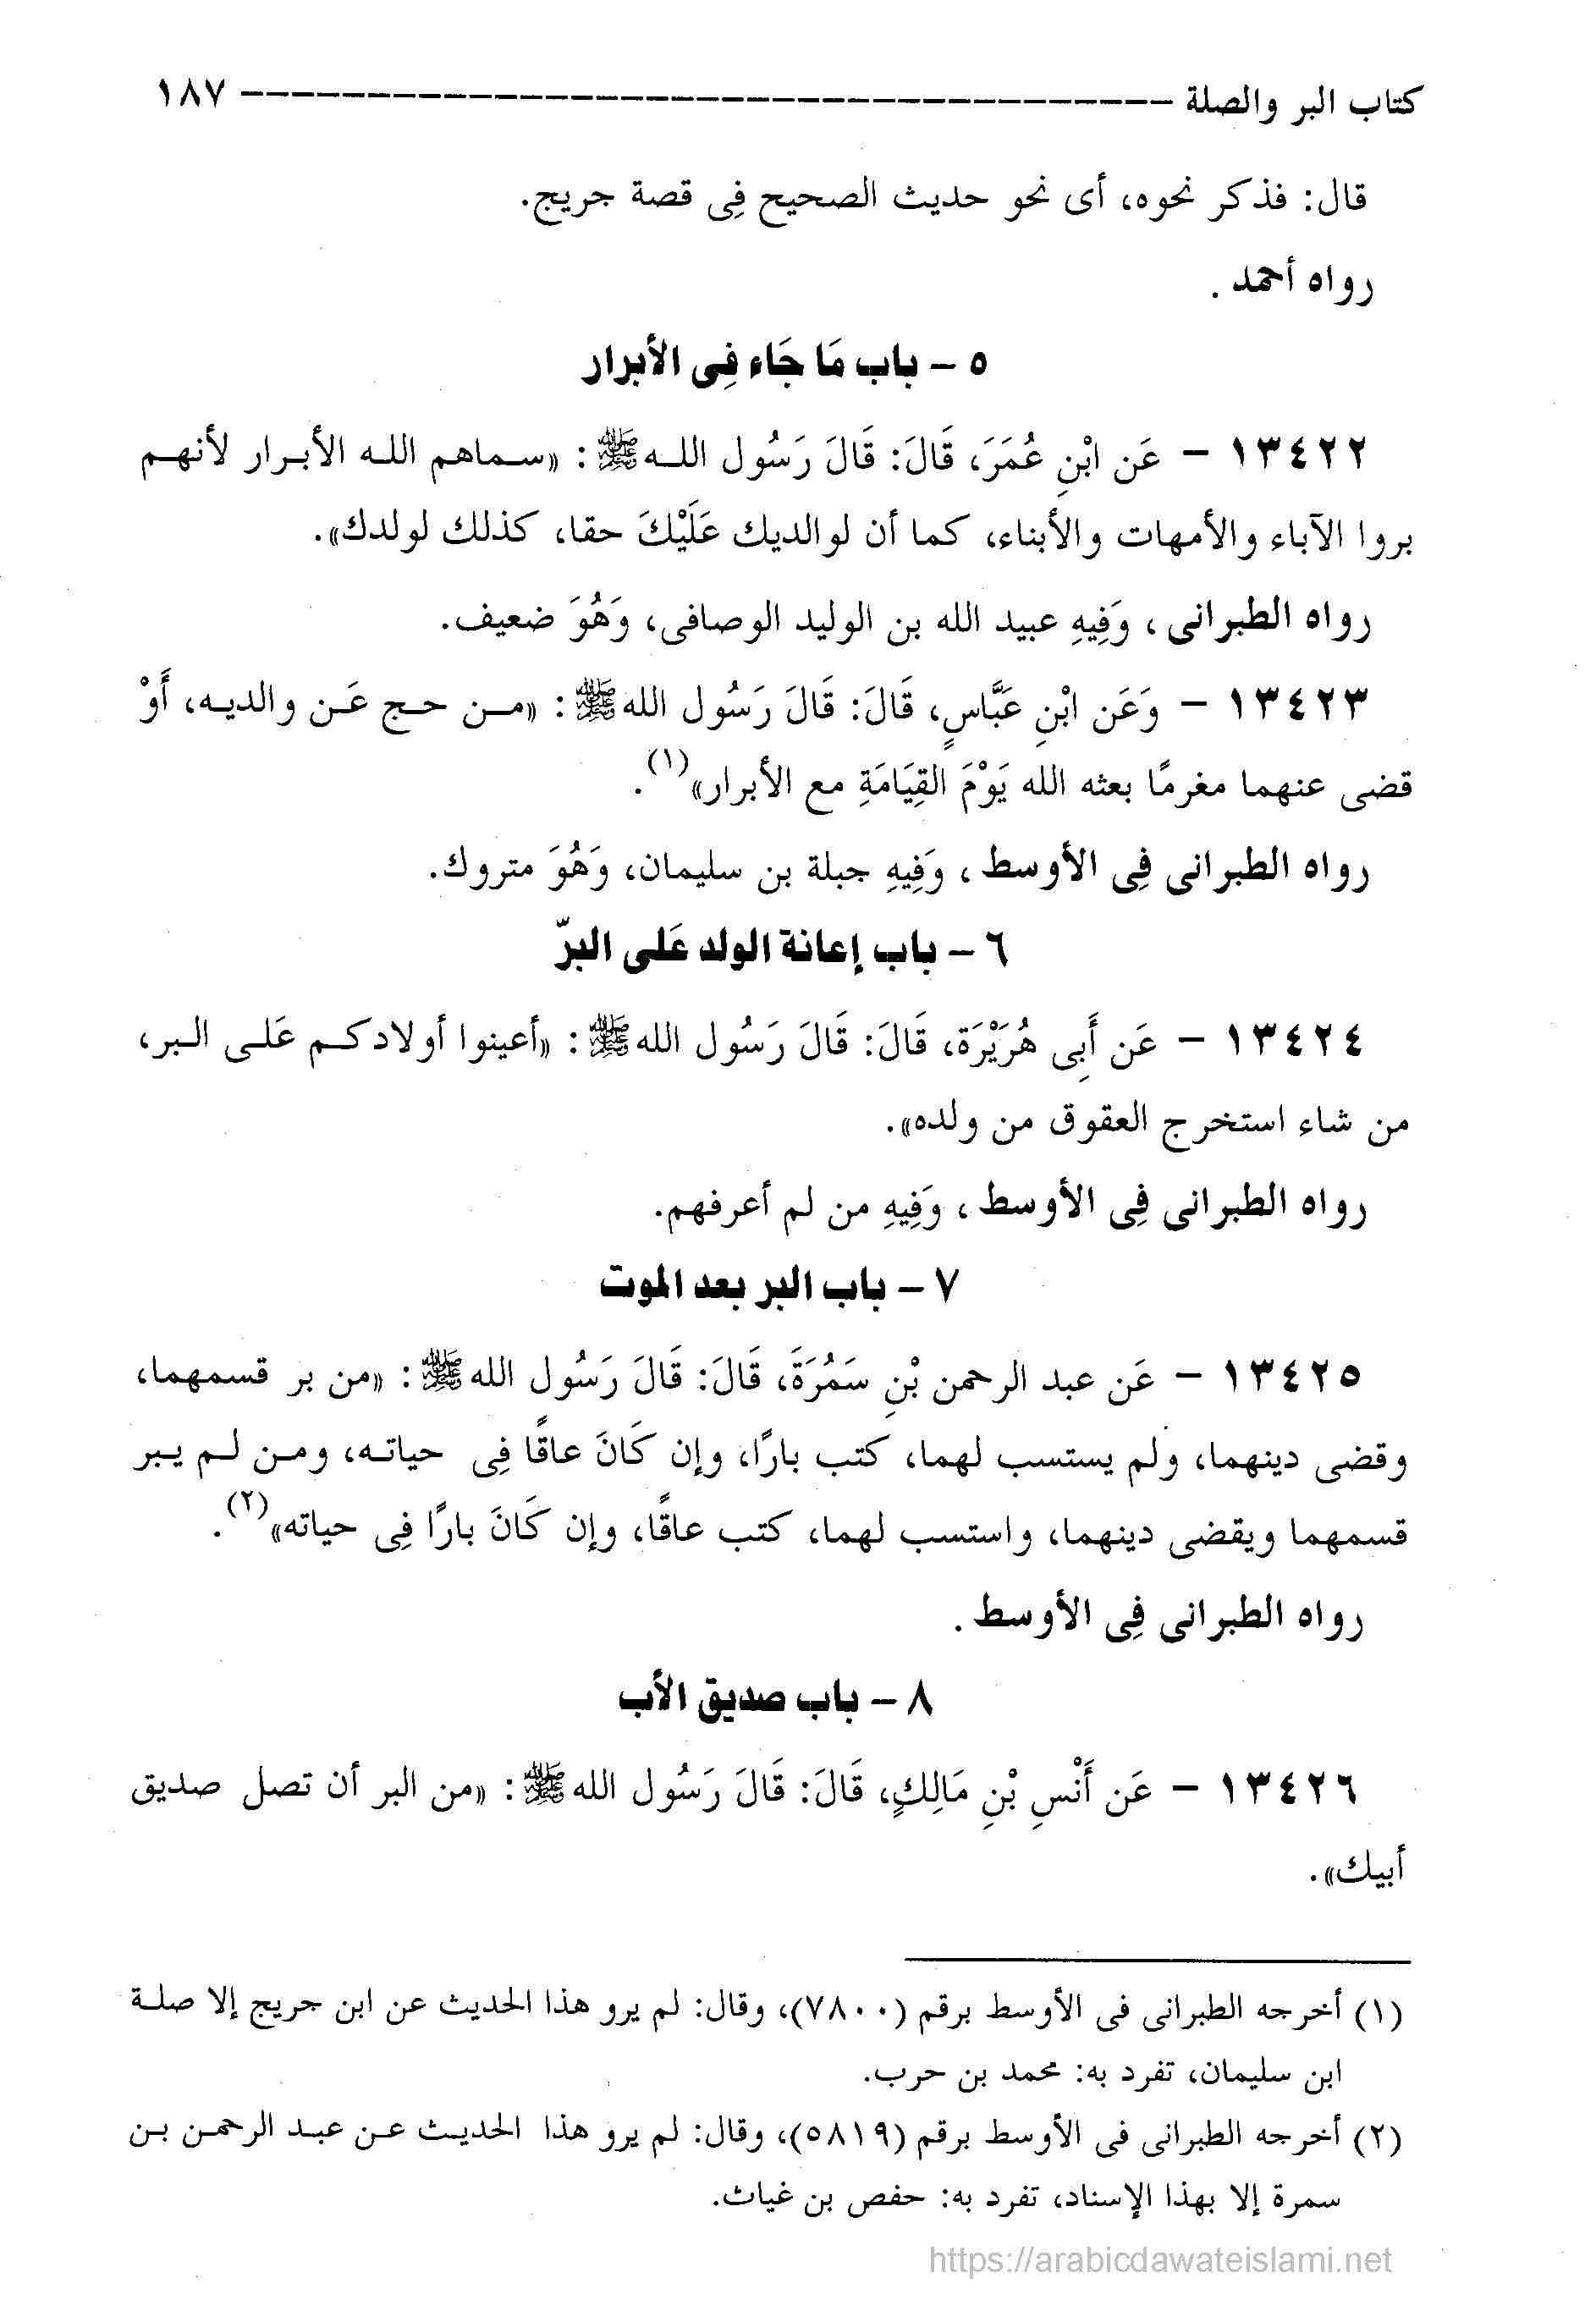 كتاب البر والصلة ------------------------------------- ١٨٧
قال: فذكر نحوه، أى نحو حديث الصحيح فِى قصة جريج.
رواه أحمد .
٥ – باب مَا جَاء فِى الأبرار
١٣٤٢٢ – عَن ابْنِ عُمَرَ، قَالَ: قَالَ رَسُول اللـه ﷺ : «سـماهم اللـه الأبـرار لأنهـم
بروا الآباء والأمهات والأبناء، كما أن لوالديك عَلَيْكَ حقا، كذلك لولدك».
رواه الطبرانى ، وَفِيهِ عبيد الله بن الوليد الوصافى، وَهُوَ ضعيف.
١٣٤٢٣ – وَعَن ابْنِ عَبَّاسٍ، قَالَ: قَالَ رَسُول الله ﷺ : «مـن حـج عَـن والديـه، أَوْ
قضى عنهما مغرمًا بعثه الله يَوْمَ القِيَامَةِ مع الأبرار»(١).
رواه الطبرانى فِى الأوسط ، وَفِيهِ جبلة بن سليمان، وَهُوَ متروك.
٦ – باب إعانة الولد عَلى البرّ
١٣٤٢٤ – عَن أَبِى هُرَيْرَة، قَالَ: قَالَ رَسُول الله ﷺ : «أعينوا أولادكـم عَلـى الـبر،
من شاء استخرج العقوق من ولده».
رواه الطبرانى فِى الأوسط ، وَفِيهِ من لم أعرفهم.
٧ – باب البر بعد الموت
١٣٤٢٥ – عَن عبد الرحمن بْنِ سَمُرَةَ، قَالَ: قَالَ رَسُول الله ﷺ : «من بر قسمهما،
وقضى دينهما، ولم يستسب لهما، كتب بارًا، وإن كَانَ عاقًا فِى حياتـه، ومـن لـم يـبر
قسمهما ويقضى دينهما، واستسب لهما، كتب عاقًا، وإن كَانَ بارًا فِى حياته»(٢).
رواه الطبرانى فِى الأوسط .
٨ – باب صديق الأب
١٣٤٢٦ – عَن أَنْسِ بْنِ مَالِكٍ، قَالَ: قَالَ رَسُول الله ﷺ : «من البر أن تصل صديق
أبيك».
(١) أخرجه الطبرانى فى الأوسط برقم (٧٨٠٠)، وقال: لم يرو هذا الحديث عن ابن جريج إلا صلـة
ابن سليمان، تفرد به: محمد بن حرب.
(٢) أخرجه الطبرانى فى الأوسط برقم (٥٨١٩)، وقال: لم يرو هذا الحديـث عـن عبـد الرحمـن بـن
سمرة إلا بهذا الإسناد، تفرد به: حفص بن غياث.
https://arabicdawateislami.net